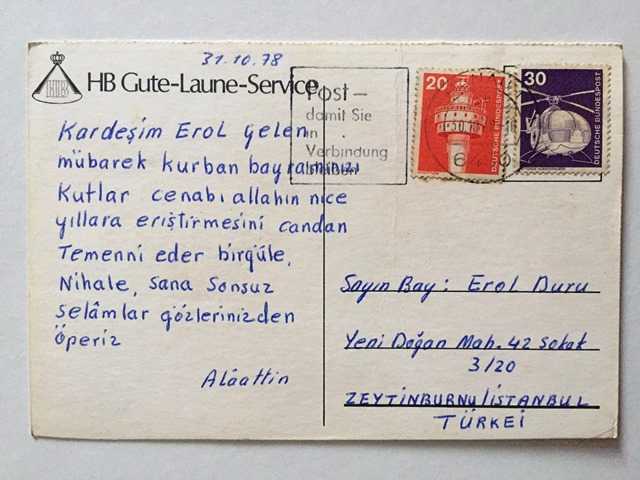 31.10.78
HB Gute-Laune-Service
HB
Post –
damit Sie
in
Verbindung
bleiben
20
DEUTSCHE BUNDESPOST
30
DEUTSCHE BUNDESPOST
Kardeşim Erol gelen
mübarek kurban bayramınızı
Kutlar cenabı allahın nice
yıllara eriştirmesini candan
Temenni eder birgüle,
Nihale, sana Sonsuz
selâmlar gözlerinizden
öperiz
Alâattin
Sayın Bay: Erol Duru
Yeni Doğan Mah. 42 sokak
3/20
ZEYTİNBURNU/İSTANBUL
TÜRKEİ